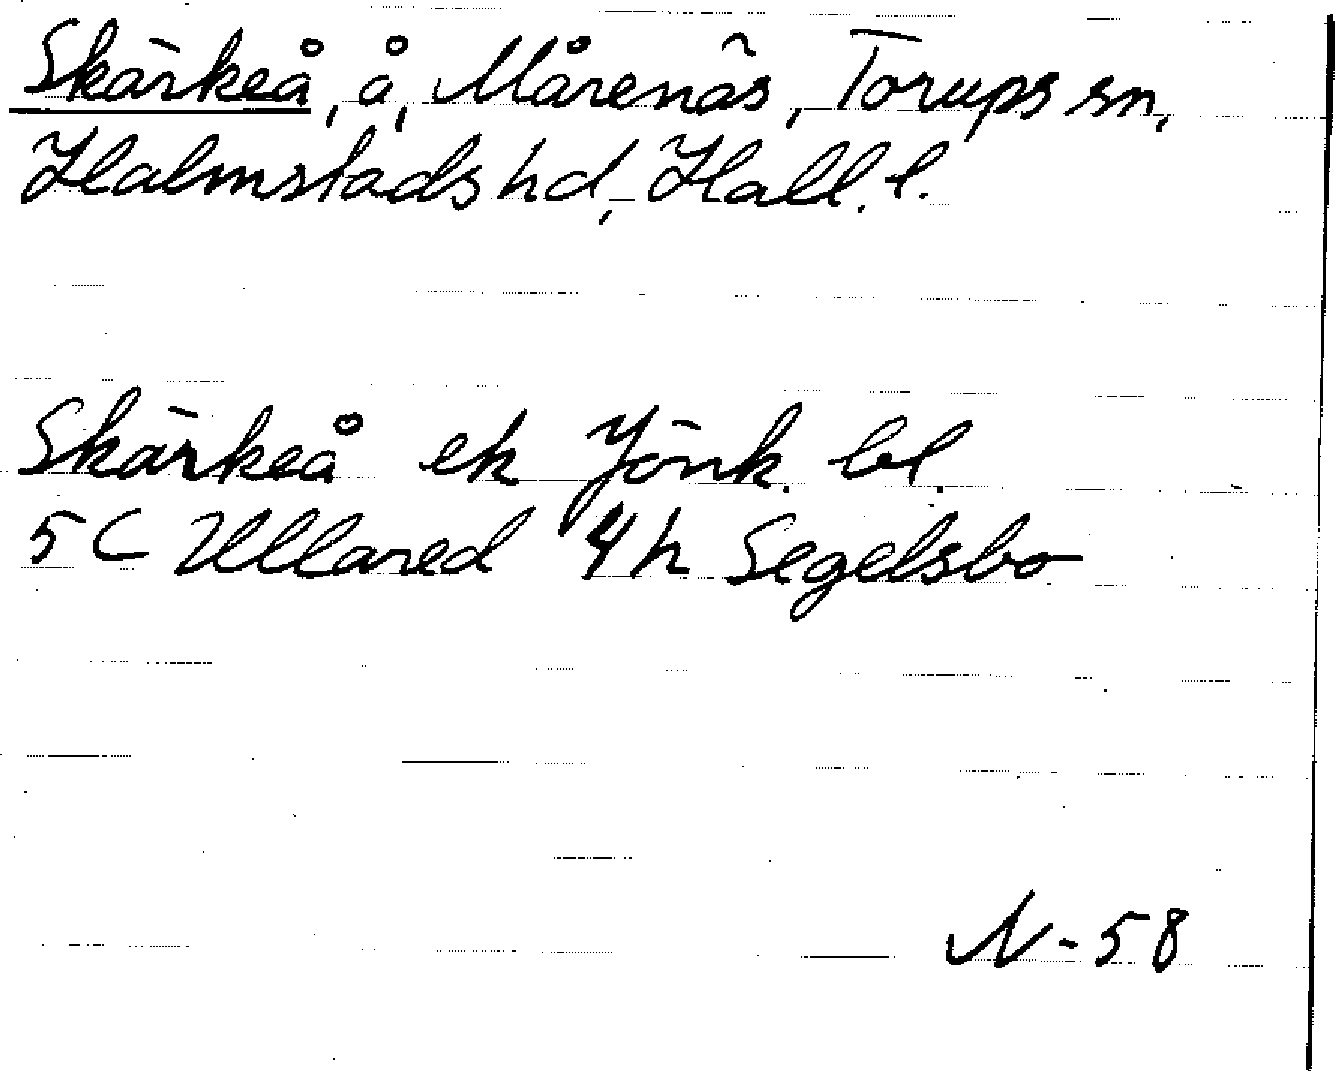 Skärkeå, å, Mårenäs, Torups sn,
Halmstads hd, Hall. l.
Skärkeå ek Jönk. bl.
5C Ullared 4h Segelsbo
N-58